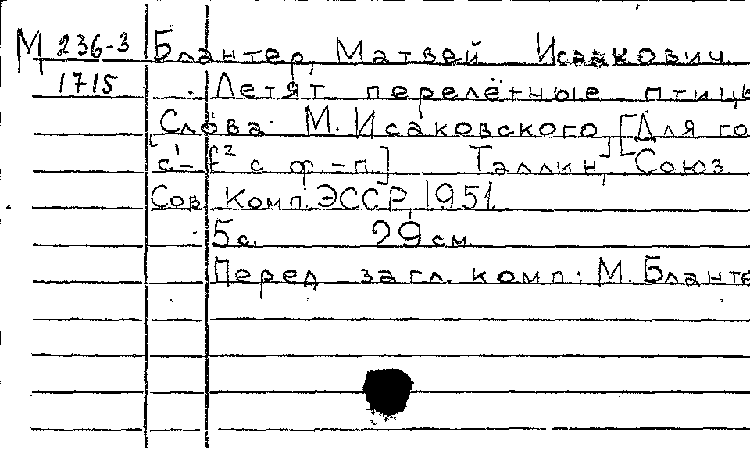 М 236-3 Блантер, Матвей Исаакович
1715 Летят перелётные птицы
Слова М. Исаковского, [Для го
с¹-f² с ф-п.] Таллин, Союз
Сов. Комп. ЭССР, 1951
5с. 29 см
Перед загл. комп: М. Бланте